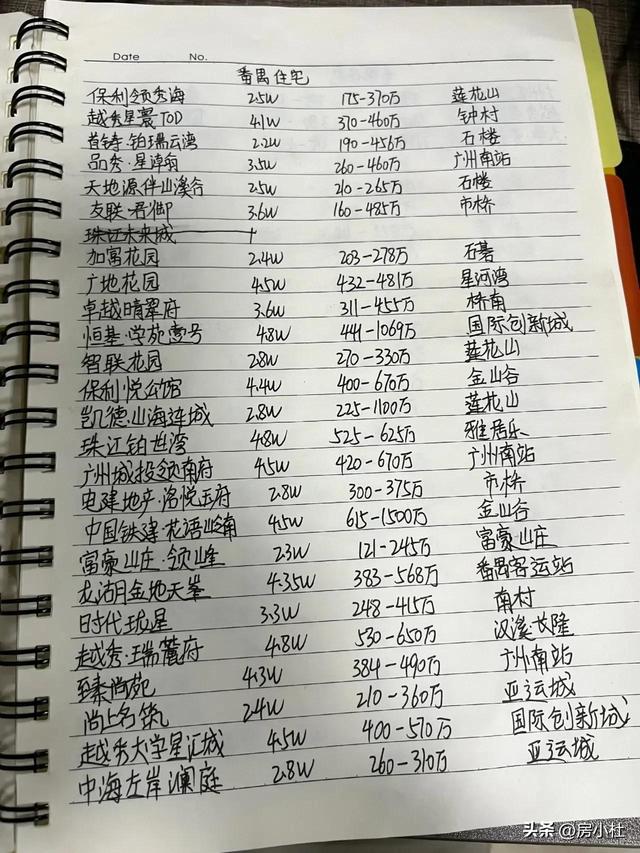 Date No.
番禺住宅
保利领秀海 2.5W 175-370万 莲花山
越秀星寰TOD 4.1W 370-460万 钟村
首铸·铂瑞云湾 2.2W 190-456万 石楼
品秀·星淖翰 3.5W 260-460万 广州南站
天地源伴山溪谷 2.5W 210-265万 石楼
友联·君御 3.6W 160-485万 市桥
珠江未来城
加富花园 2.4W 203-278万 石碁
广地花园 4.5W 432-481万 星河湾
卓越晴翠府 3.6W 311-455万 桥南
恒基·学苑壹号 4.8W 441-1069万 国际创新城
智联花园 2.8W 270-330万 莲花山
保利悦公馆 4.4W 400-670万 金山谷
凯德·山海连城 2.8W 225-1100万 莲花山
珠江铂世湾 4.8W 525-625万 雅居乐
广州城投领南府 4.5W 420-670万 广州南站
电建地产·洺悦玉府 2.8W 300-375万 市桥
中国铁建·花语岭南 4.5W 615-1500万 金山谷
富豪山庄·领峰 2.3W 121-245万 富豪山庄
龙湖金地天峯 4.35W 383-568万 番禺客运站
时代珑星 3.3W 248-415万 南村
越秀·瑞麓府 4.8W 530-650万 汉溪长隆
臻尚苑 4.3W 384-490万 广州南站
尚上名筑 2.4W 210-360万 亚运城
越秀大学星汇城 4.5W 400-570万 国际创新城
中海左岸澜庭 2.8W 260-310万 亚运城
头条 @房小杜